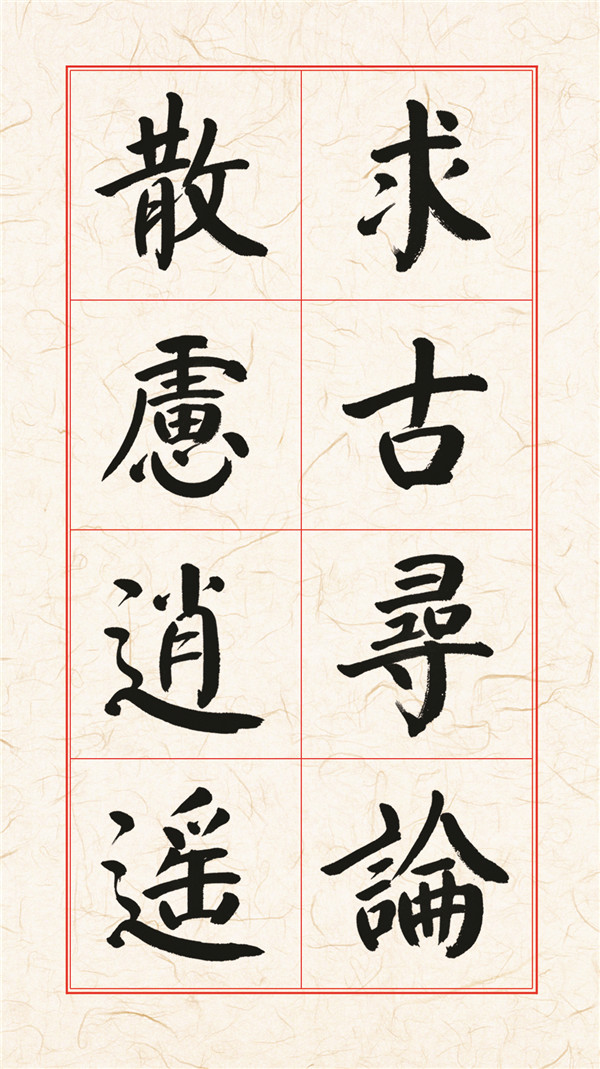 求古尋論
散慮逍遥